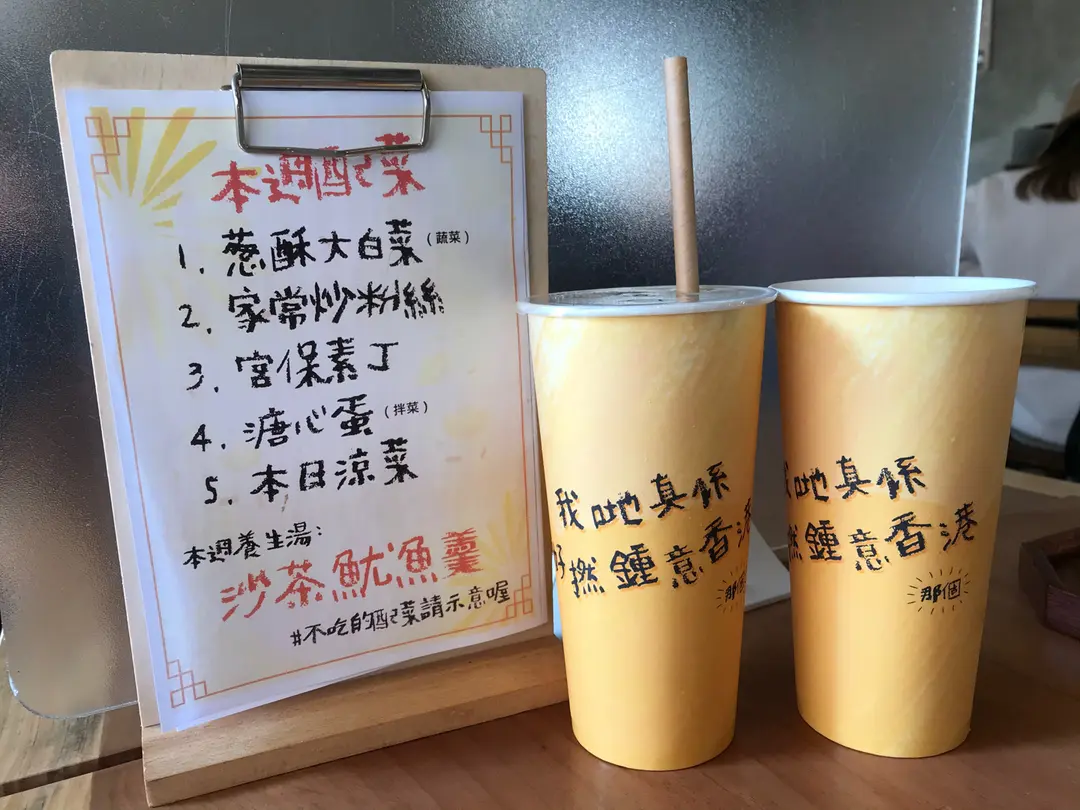 本週配菜
1. 蔥酥大白菜(蔬菜)
2. 家常炒粉絲
3. 宮保素丁
4. 溏心蛋(拌菜)
5. 本日涼菜
本週養生湯:
沙茶魷魚羹
#不吃的配菜請示意喔
我哋真係
好撚鍾意香港
那個
我哋真係
撚鍾意香港
那個